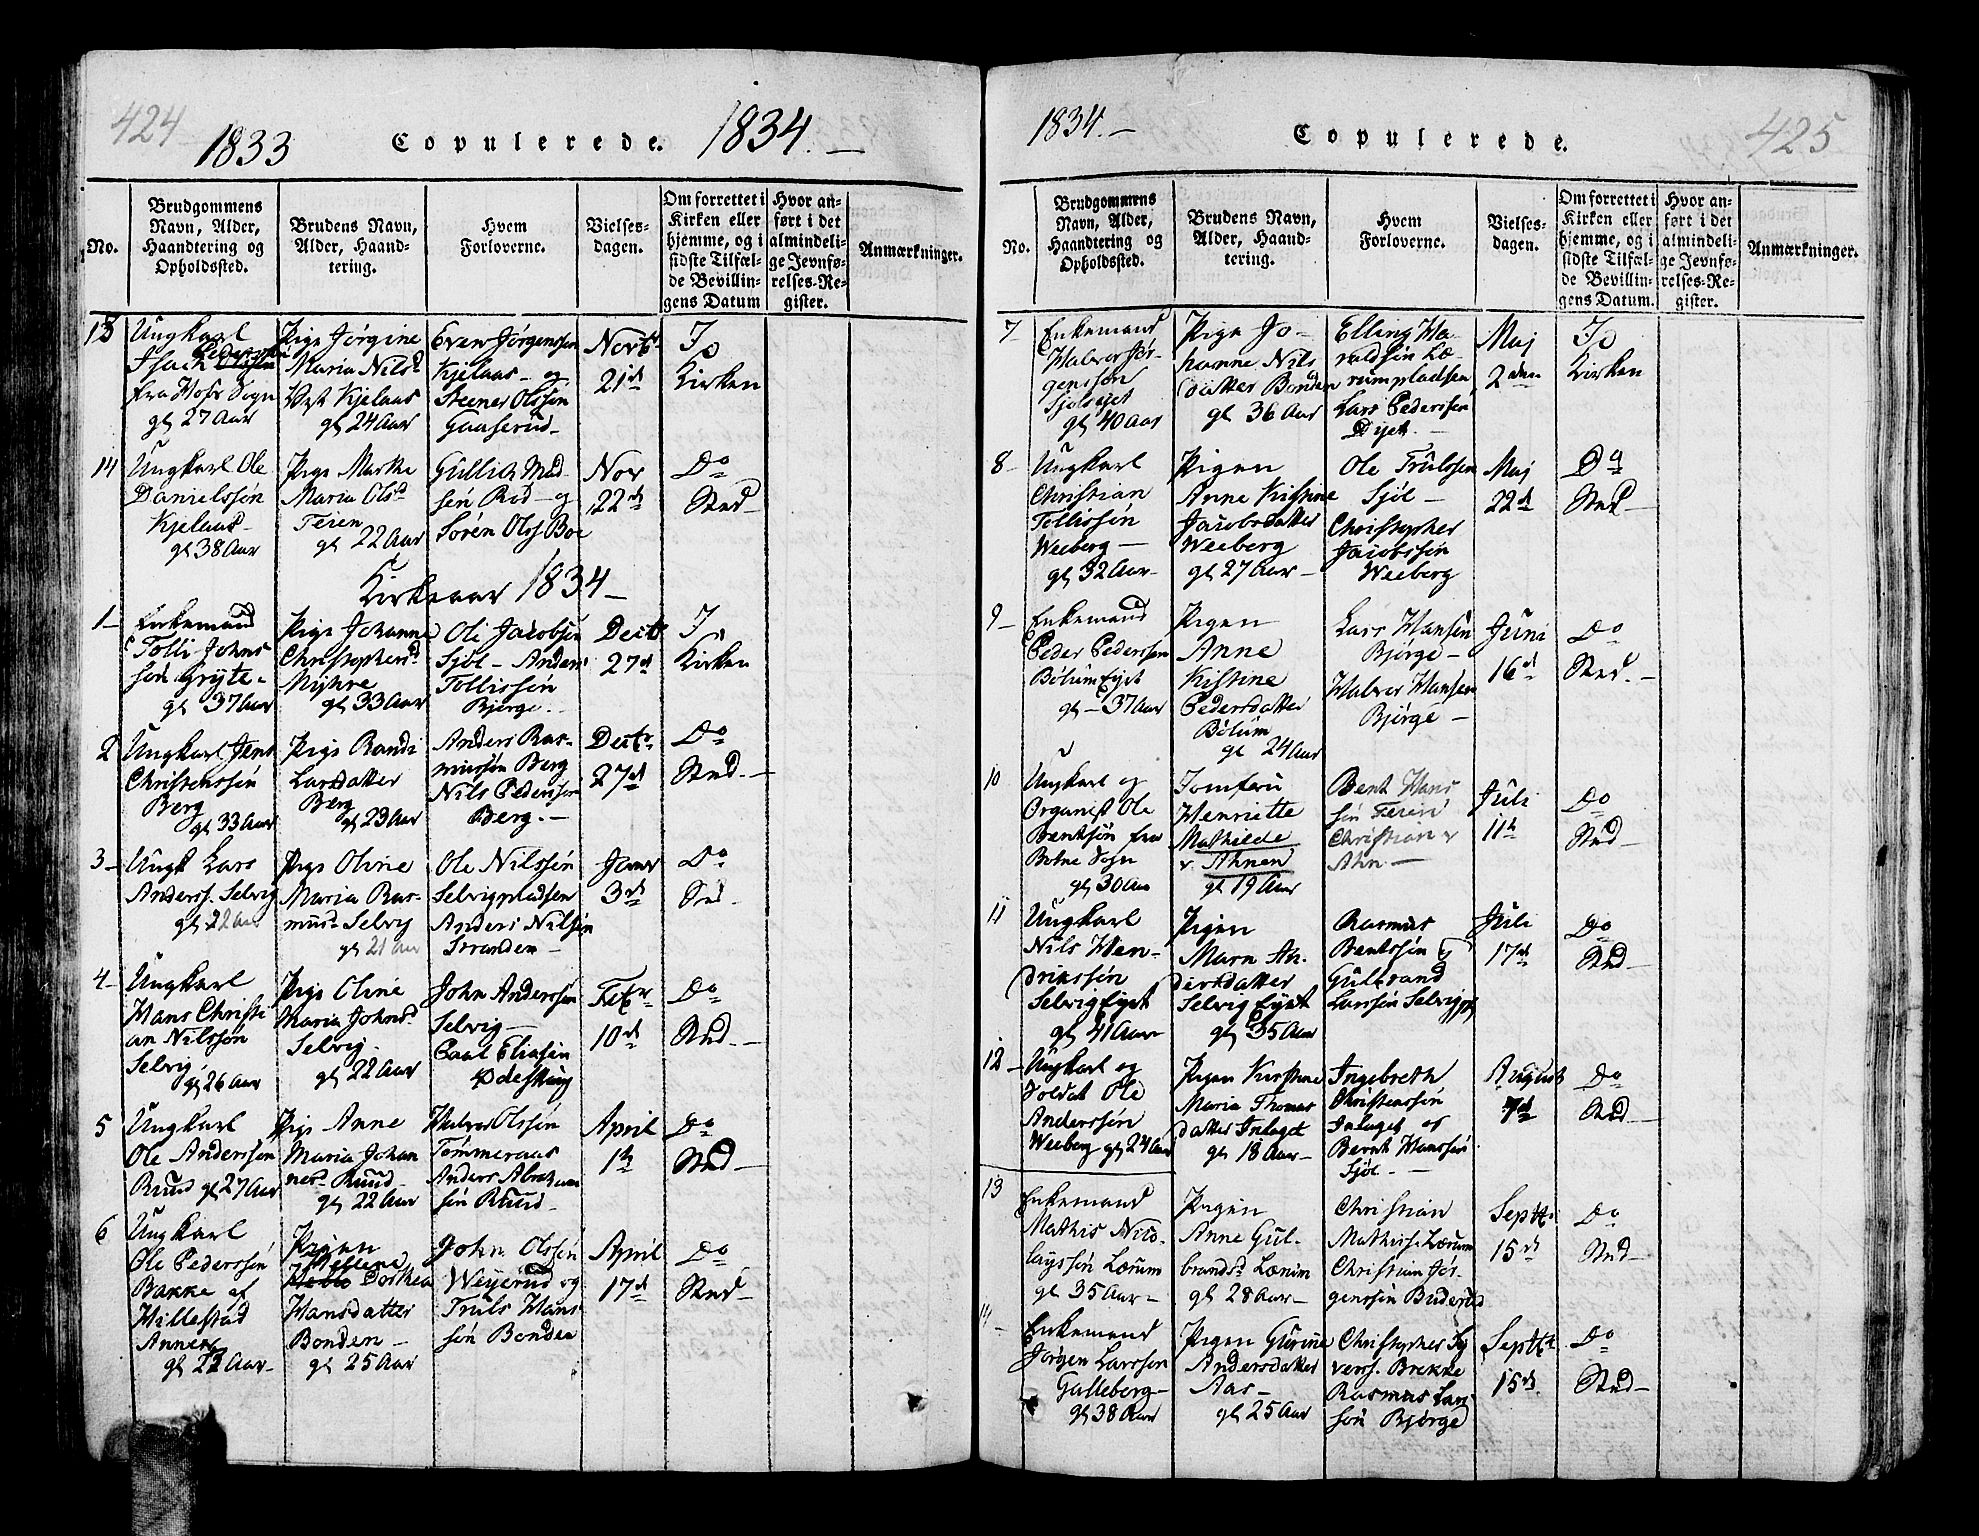 424
1833
Copulerede.
1834.
No.
Brudgommens
Navn, Alder,
Haandtering og
Opholdssted.
Brudens Navn,
Alder, Haand-
tering.
Hvem
Forloverne.
Vielses-
dagen.
Om forrettet i
Kirken eller
hjemme, og i
sidste Tilfæl-
de Bevillin-
gens Datum
Hvor an-
ført i det
almindeli-
ge Jevnfø-
relses-Re-
gister.
Anmærkninger.
13
Ungkarl
Pederssen
Isach
fra Hofs Sogn
gl 27 Aar
Pige Jørgine
Maria Nilsd
Vest Kjelaas
gl 24 Aar
Even Jørgenssen
Kjelaas - og
Steener Olssøn
Gaaserud -
Novbr
21de
I
Kirken
14
Ungkarl Ole
Danielssøn
Kjelaas -
gl 38 Aar
Pige Marthe
Maria Olsd
Feien
gl 22 Aar
Gullich Mad-
søn Rød - og
Søren Olss. Boe
Nov
22de
Do
Sted -
Kirkeaar 1834 -
1 -
Enkemand
Tolli Johns
søn Gryte -
gl 37 Aar
Pige Johanne
Christophersd
Myhre
gl 33 Aar
Ole Jacobsen
Sjøl - Anders
Tollissøn
Bjørge. -
Decbr
27de
I
Kirken
2
Ungkarl Jens
Christenssøn
Berg
gl 33 Aar
Pige Randi
Larsdatter
Berg
gl 23 Aar
Anders Ras-
mussøn Berg
Nils Pederssøn
Berg. -
Decbr
27de
Do
Sted. -
3 -
Ungk Lars
Anderss. Selvig
gl 22 Aar
Pige Oline
Maria Ras-
musd Selvig
gl 21 Aar
Ole Nilssøn
Selvigpladsen
Anders Nilsøn
Stranden -
Janr
3de
Do
Sted -
4 -
Ungkarl
Hans Christi-
an Nilssøn
Selvig
gl 26 Aar
Pige Oline
Maria Johnsd
Selvig.
gl 22 Aar
John Anderssøn
Selvig -
Paal Eliasen
Febr
10de
Do
Sted. -
5
Ungkarl
Ole Anderssøn
Ruud gl 27 Aar
Pige Anne
Maria Johan
nesd Ruud -
gl 22 Aar
Halvor Olssøn
Tømmeraas
Anders Abraham
søn Ruud -
April
1te
Do
Sted -
6
Ungkarl
Ole Pederssøn
Bakke af
Hillestad
Annex
gl 22 Aar -
Pigen
Hellene
Dorthea
Hansdatter
Bonden -
gl 25 Aar
John Olssøn
Weyerud og
Truls Hans
søn Bonden
April
17de
Do
Sted -
1834. -
Copulerede.
425
No.
Brudgommens
Navn, Alder,
Haandtering og
Opholdssted.
Brudens Navn,
Alder, Haand-
tering.
Hvem
Forloverne.
Vielses-
dagen.
Om forrettet i
Kirken eller
hjemme, og i
sidste Tilfæl-
de Bevillin-
gens Datum.
Hvor an-
ført i det
almindeli-
ge Jevnfø-
relses-Re-
gister.
Anmærkninger.
7 -
Enkemand
Halvor Jør-
genssøn
Sjølseiet
gl 40 Aar
Pige Jo-
hanne Nils
datter Bonden
gl 36 Aar
Elling Ha-
raldsøn Læ-
rumpladsen
Lars Pederssøn
Maj
2den
I
Kirken
8 -
Ungkarl
Christian
Tollissøn
Weeberg -
gl 32 Aar -
Pigen
Anne Kristine
Jacobsdatter
Weeberg
gl 27 Aar -
Ole Trulssen
Sjøl -
Christopher
Jacobssøn
Weeberg
Maj
22de
Do
Sted -
9 -
Enkemand
Peder Pederssøn
Bølum Eyet
gl - 37 Aar
Pigen
Anne
Kistine
Pedersdatter
Bølum
gl 24 Aar
Lars Hansen
Bjørge -
Halvor Hansen
Bjørge -
Juni
16de
Do
Sted. -
10
Ungkarl og
Organist Ole
Bentsøn fra
Botne Sogn
gl 30 Aar
Jomfru
Henriette
Mathilde
v. Ahnen
gl 19 Aar
Bent Hans
søn Feien
Christian v
Ahn. -
Juli
11te
Do
Sted -
11
Ungkarl
Nils Hen-
drikssøn
Selvig Eyet
gl 41 Aar
Pigen
Maren An-
dersdatter
Selvig Eyet
gl 35 Aar
Rasmus
Bentssøn og
Gulbrand
Larssøn Selvigpl
Juli
17de
Do
Sted -
12 -
Ungkarl og
Soldat Ole
Anderssøn
Weeberg gl 24 Aar
Pigen Kirstine
Maria Thomas
datter Inlaget
gl 18 Aar -
Ingebreth
Christenssøn
Inlaget og
Bernt Hanssøn
Sjøl. -
August
7de
Do
Sted -
13
Enkemand
Mathis Nico-
layssøn Lærum
gl 35 Aar -
Pigen
Anne Gul-
brandsd Lærum
gl 28 Aar -
Christian
Mathiss. Lærum
Christian Jør-
genssøn Budersted
Septbr
15de
Do
Sted -
14 -
Enkemand
Jørgen Larssøn
Galleberg -
gl 38 Aar
Pigen Gurine
Andersdatter
Aas -
gl 25 Aar
Christopher Sy
verss. Brekke
Rasmus Lar
søn Bjørge
Septbr
15de
Do
Sted -